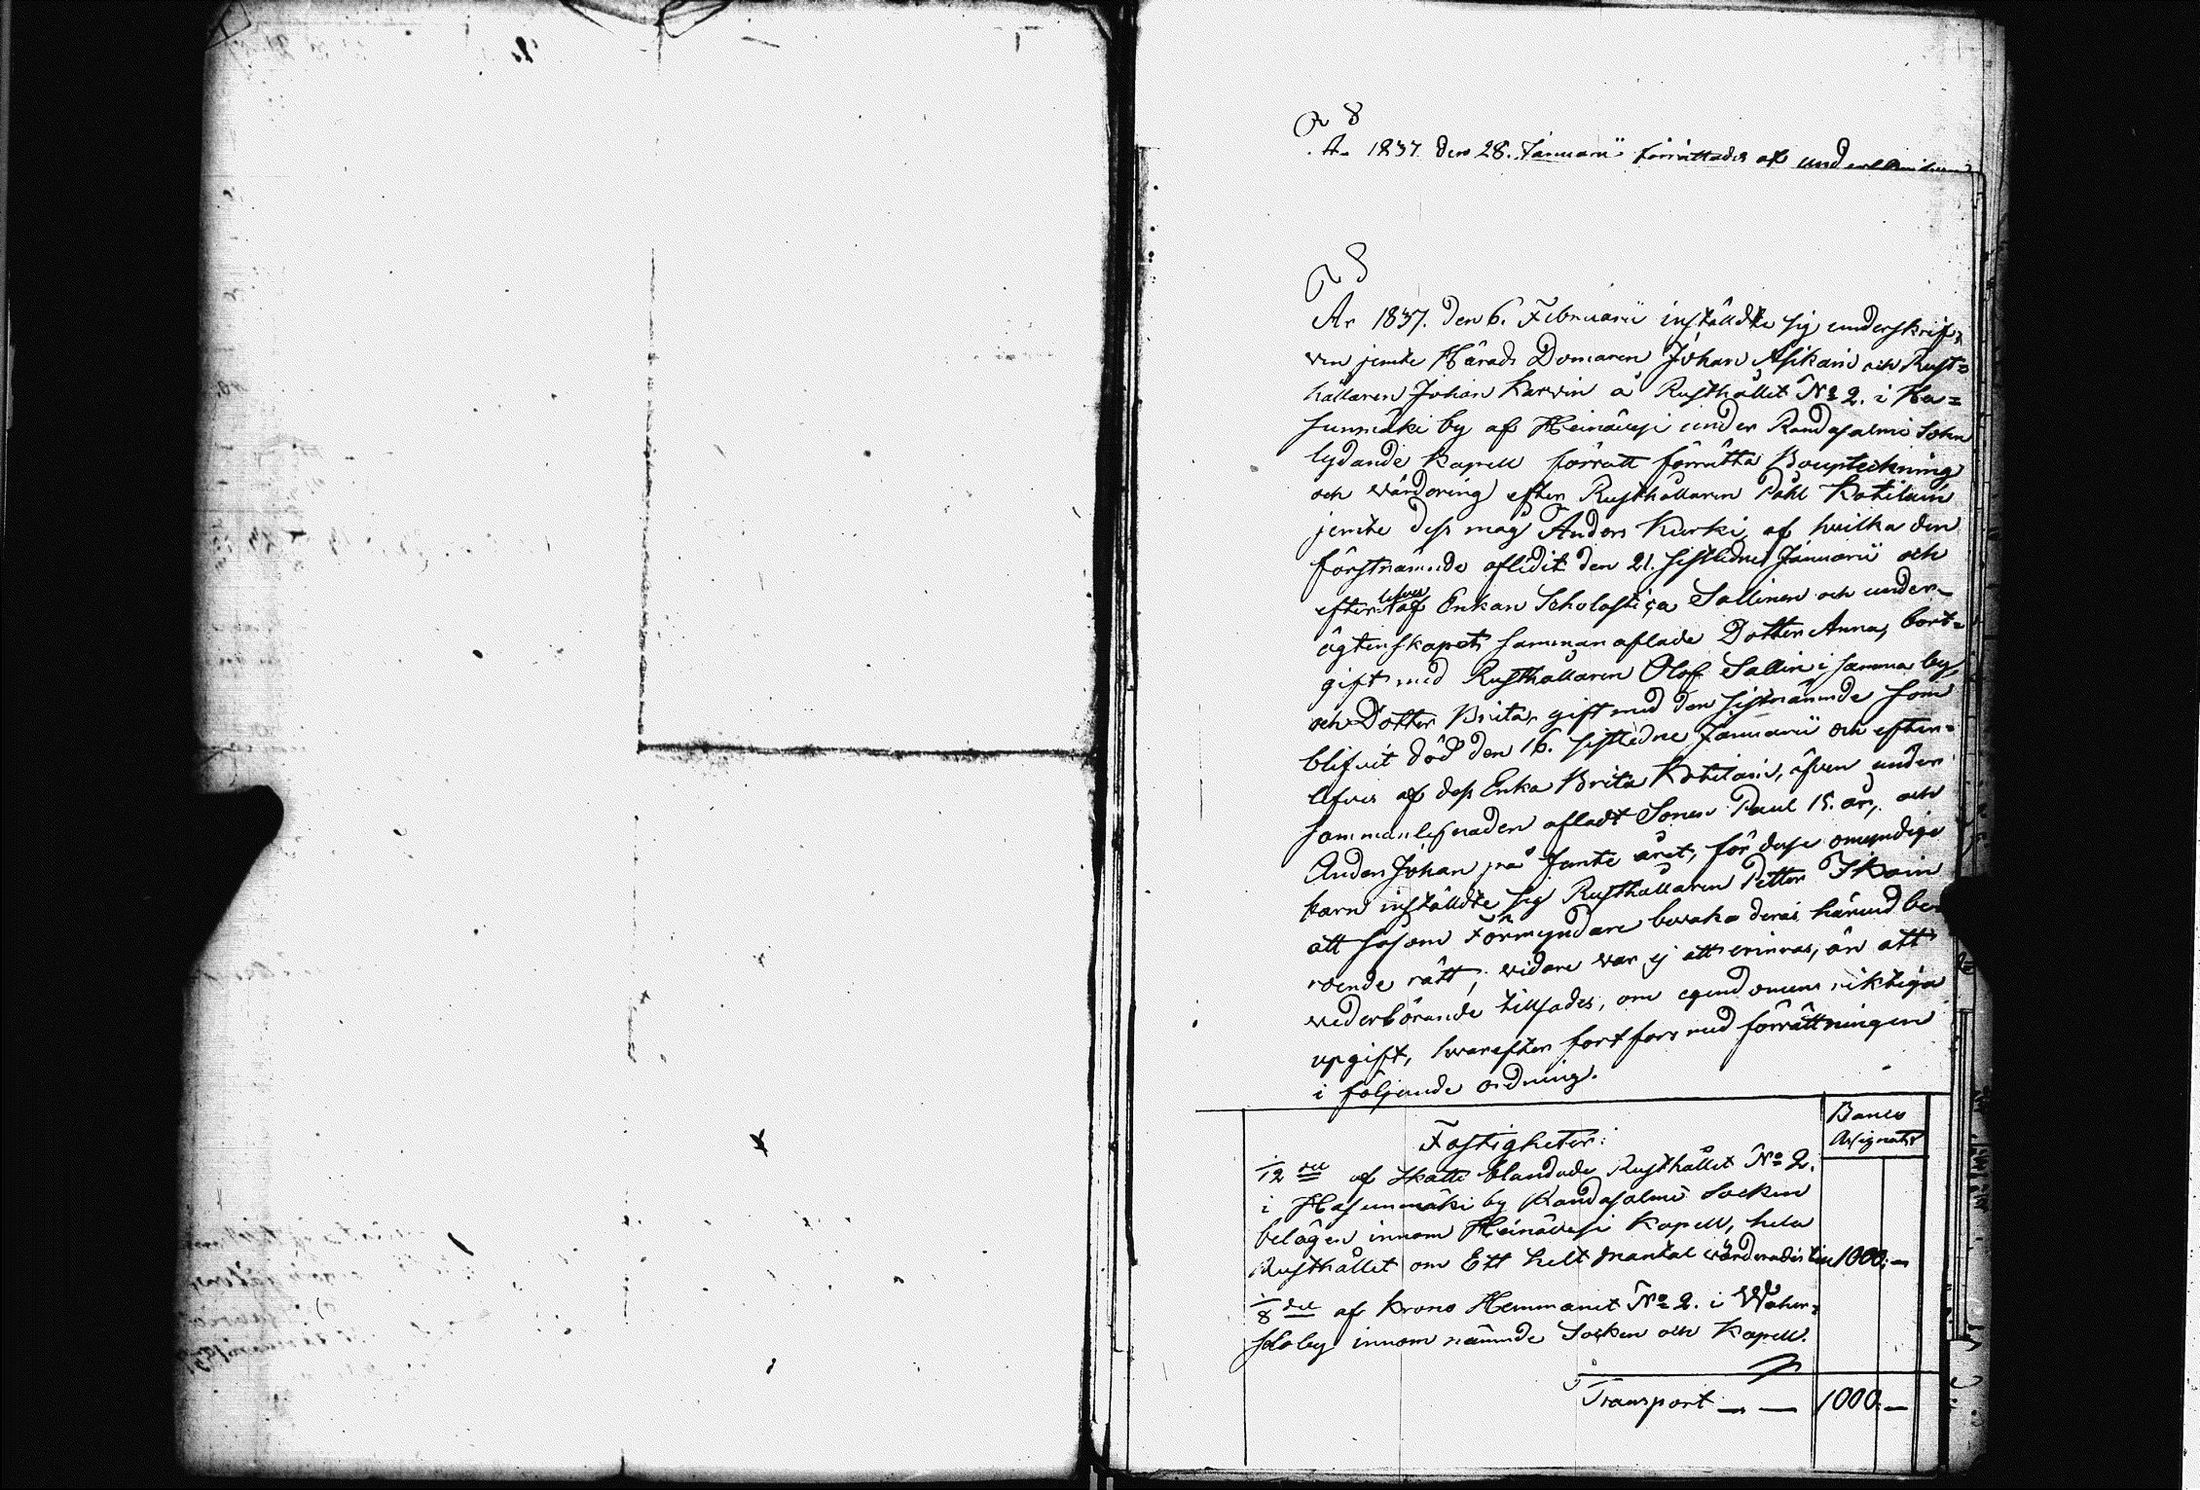 N 8
År 1837 den 28. Januarii förrättades af undertecknad
N 8
År 1837. den 6. Februarii inställdte sig underskrif,
ven jemte Härads Domaren Johan Asikain och Rust=
hållaren Johan Karvin å Rusthållet No 2. i Ha=
sunmäki by af Heinävesi under Randasalmi Sokn
lydande Kapell förrätt förrätta Bouptekning
och värdering efter Rusthållaren Påhl Kotilain
jemte dess måg Anders Kurki, af hvilka den
förstnämnde aflidit den 21. sistledne Januarii och
efterlefves af Enkan Scholastica Sallinen och under
ägtenskapet sammanaflade Dotter Anna, bort=
gift med Rusthållaren Olof Sallin i samma by,
och Dotter Brita, gift med den sistnämnde som
blifvit död den 16. sistledne Januarii och efter=
lefves af dess Enka Brita Kotilain, äfven under
sammanlefnaden afladt Sonen Paul 15. år, och
Anders Johan på femte året, för dessa omyndiga
barn inställdte sig Rusthållaren Petter Ikäin
att såsom Förmyndare bevaka deras härvid be
roende rätt; vidare var ej att erinras, än att
vederbörande tillsades, om egendomens riktiga
upgift, hvarefter fortfors med förrättningen
i följande ordning.
Banco
Assignatr
Fastigheter:
1/12 del af Skatte blandade Rusthållet No 2.
i Hasunmäki by Randasalmi Socken
belägen innom Heinävesi Kapell, hela
Rusthållet om Ett helt mantal värderades till 1000:—
1/8 del af Krono Hemmanet No 2. i Waher=
salo by innom nämnde Socken och Kapell.
Transport — — 1000:—